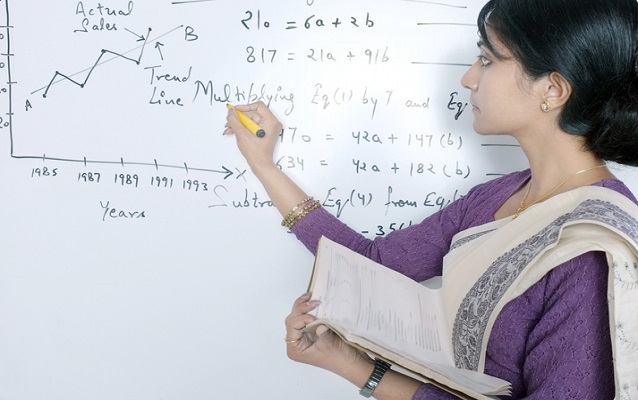 Actual
Sales
B
Trend
Line
A
20
X
1985 1987 1989 1991 1993
Years
210 = 6a + 2b
817 = 21a + 91b
Multiplying Eq(1) by 7 and Eq
470 = 42a + 147(b)
634 = 42a + 182(b)
Eq(4) from Eq(
- 35(